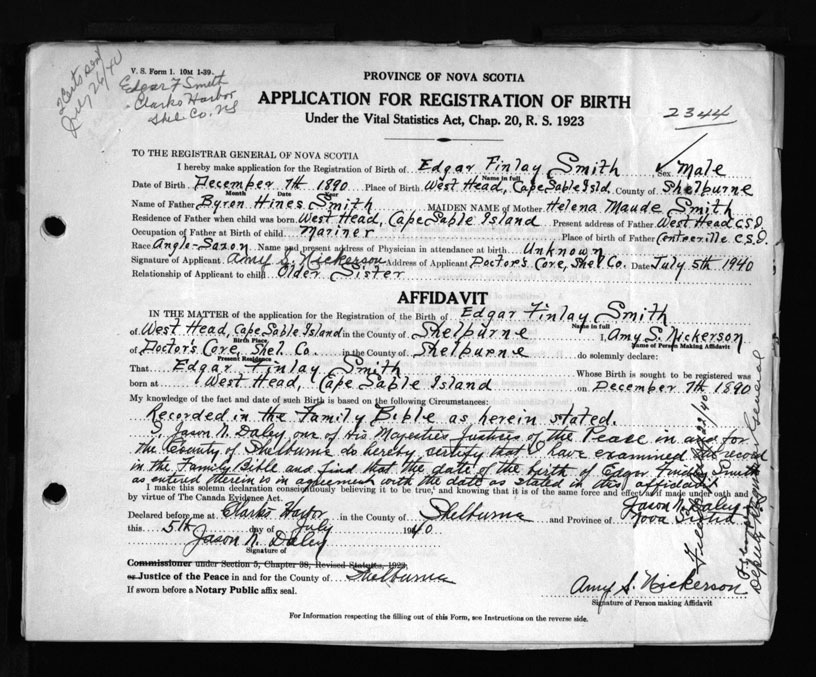 V. S. Form 1. 10M 1-39.
July 26/40
Edgar F Smith
Clarks Harbor
Shel. Co. NS
PROVINCE OF NOVA SCOTIA
APPLICATION FOR REGISTRATION OF BIRTH
Under the Vital Statistics Act, Chap. 20, R. S. 1923
2344
TO THE REGISTRAR GENERAL OF NOVA SCOTIA
I hereby make application for the Registration of Birth of Edgar Finlay Smith Sex Male
Name in full
Date of Birth December 7th 1890 Place of Birth West Head, Cape Sable Isld County of Shelburne
Month Date Year
Name of Father Byron Hines Smith MAIDEN NAME of Mother Helena Maude Smith
Residence of Father when child was born West Head, Cape Sable Island Present address of Father West Head C.S.I.
Occupation of Father at Birth of child Mariner Place of birth of Father Centreville C.S.I.
Race Anglo-Saxon Name and present address of Physician in attendance at birth Unknown
Signature of Applicant Amy S. Nickerson Address of Applicant Doctor's Cove, Shel Co. Date July 5th 1940
Relationship of Applicant to child Older Sister
AFFIDAVIT
IN THE MATTER of the application for the Registration of the Birth of Edgar Finlay Smith
Name in full
of West Head, Cape Sable Island in the County of Shelburne I, Amy S. Nickerson
Birth Place Name of Person Making Affidavit
of Doctor's Cove, Shel. Co. in the County of Shelburne do solemnly declare:
Present Residence
That Edgar Finlay Smith Whose Birth is sought to be registered was
born at West Head, Cape Sable Island on December 7th 1890
My knowledge of the fact and date of such Birth is based on the following Circumstances:
Recorded in the Family Bible as herein stated.
I, Jason N. Daley, one of His Majesties Justices of the Peace in and for
the County of Shelburne do hereby certify that I have examined the record
in the Family Bible and find that the date of the birth of Edgar Finlay Smith
as entered therein is in agreement with the date as stated in this affidavit
I make this solemn declaration conscientiously believing it to be true, and knowing that it is of the same force and effect as if made under oath and
by virtue of The Canada Evidence Act. Jason N. Daley
Declared before me at Clarks Harbor in the County of Shelburne and Province of Nova Scotia
this 5th day of July 1940
Jason N. Daley
Signature of
Commissioner under Section 5, Chapter 38, Revised Statutes, 1923,
or Justice of the Peace in and for the County of Shelburne
If sworn before a Notary Public affix seal.
Amy S. Nickerson
Signature of Person making Affidavit
For Information respecting the filling out of this Form, see Instructions on the reverse side.
Deputy Registrar General